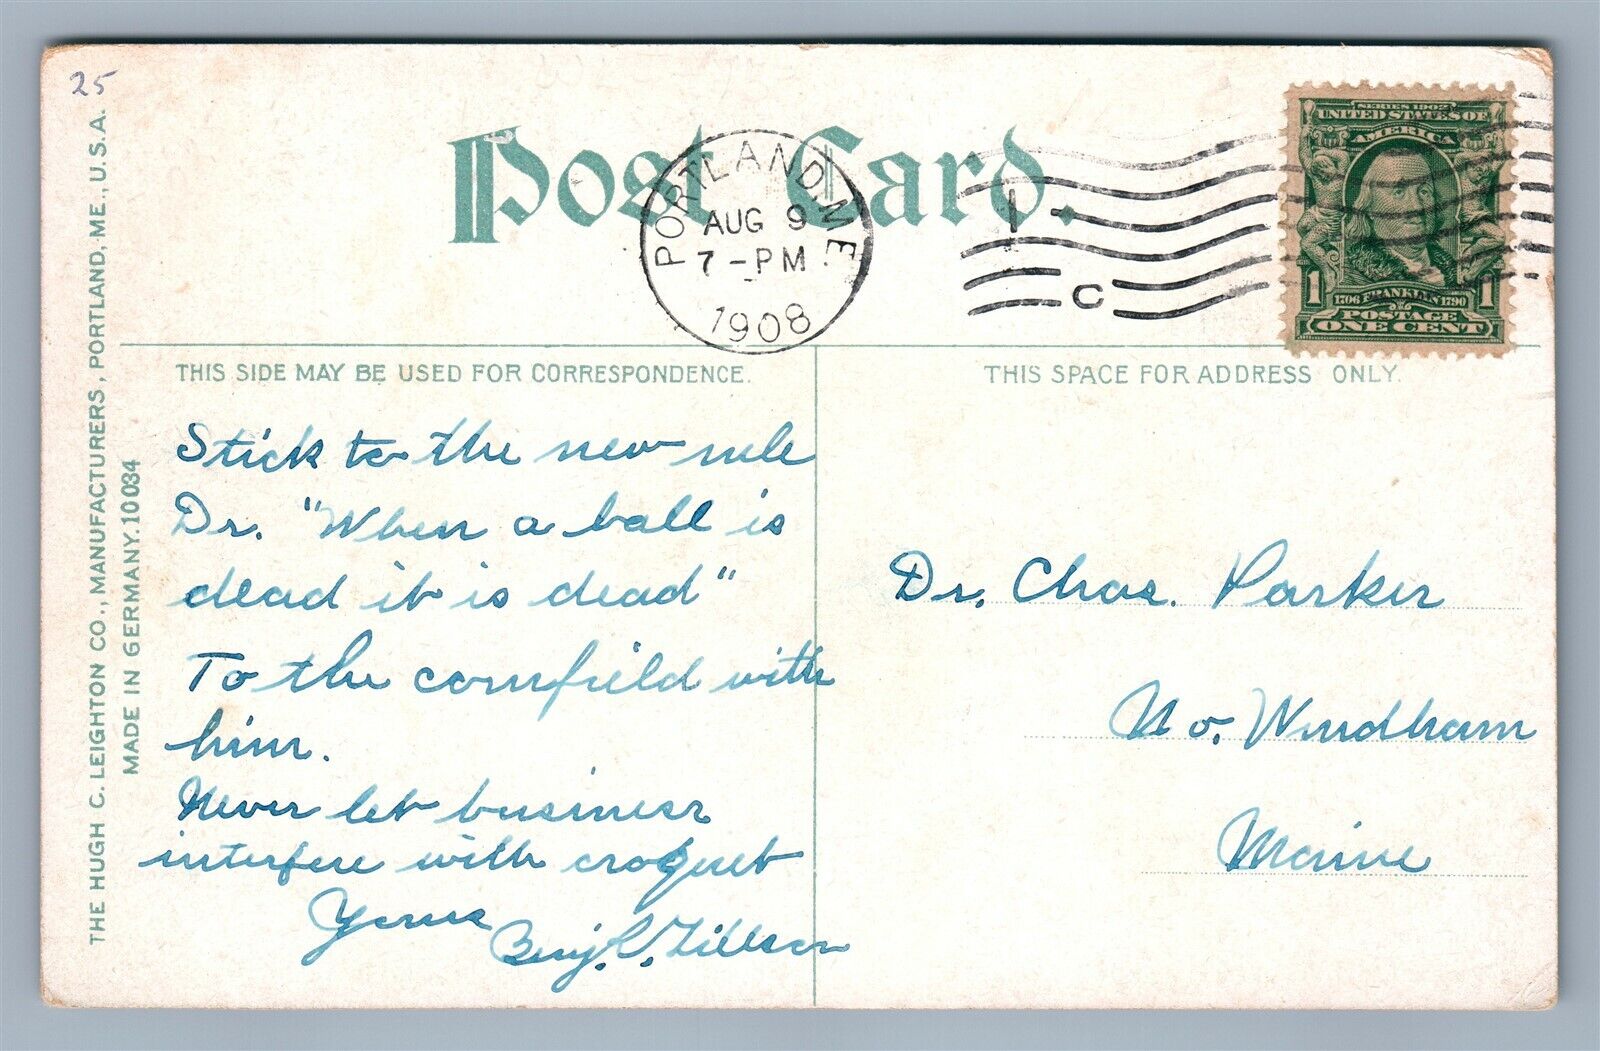 25
Post Card.
PORTLAND, ME.
AUG 9
7-PM
1908
1
C
SERIES 1902
UNITED STATES OF
AMERICA
1706 FRANKLIN 1790
1 1
POSTAGE
ONE CENT
THE HUGH C. LEIGHTON CO., MANUFACTURERS, PORTLAND, ME., U.S.A.
MADE IN GERMANY. 10034
THIS SIDE MAY BE USED FOR CORRESPONDENCE.
Stick to the new rule
Dr. "When a ball is
dead it is dead"
To the cornfield with
him.
Never let business
interfere with croquet
Yours
Benj. C. Tillson
THIS SPACE FOR ADDRESS ONLY.
Dr. Chas. Parker
No. Windham
Maine